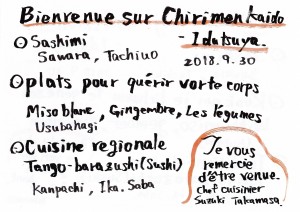 Bienvenue sur Chirimen kaido
- Idatsuya.
① Sashimi
Sawara, Tachiuo
2018.9.30
② plats pour quérir vorte corps
Miso blanc, Gingembre, Les légumes
Usubahagi
③ Cuisine regionale
Tango-barazushi (Sushi)
Kanpachi, Ika. Saba
Je vous
remercie
d'être venue.
Chef cuisinier
Suzuki Takamasa.